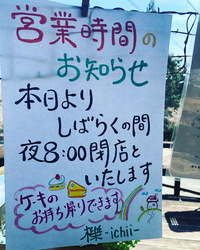 営業時間の
お知らせ
本日より
しばらくの間
夜8:00閉店と
いたします
ケーキの
お持ち帰りできます
櫟-ichii-